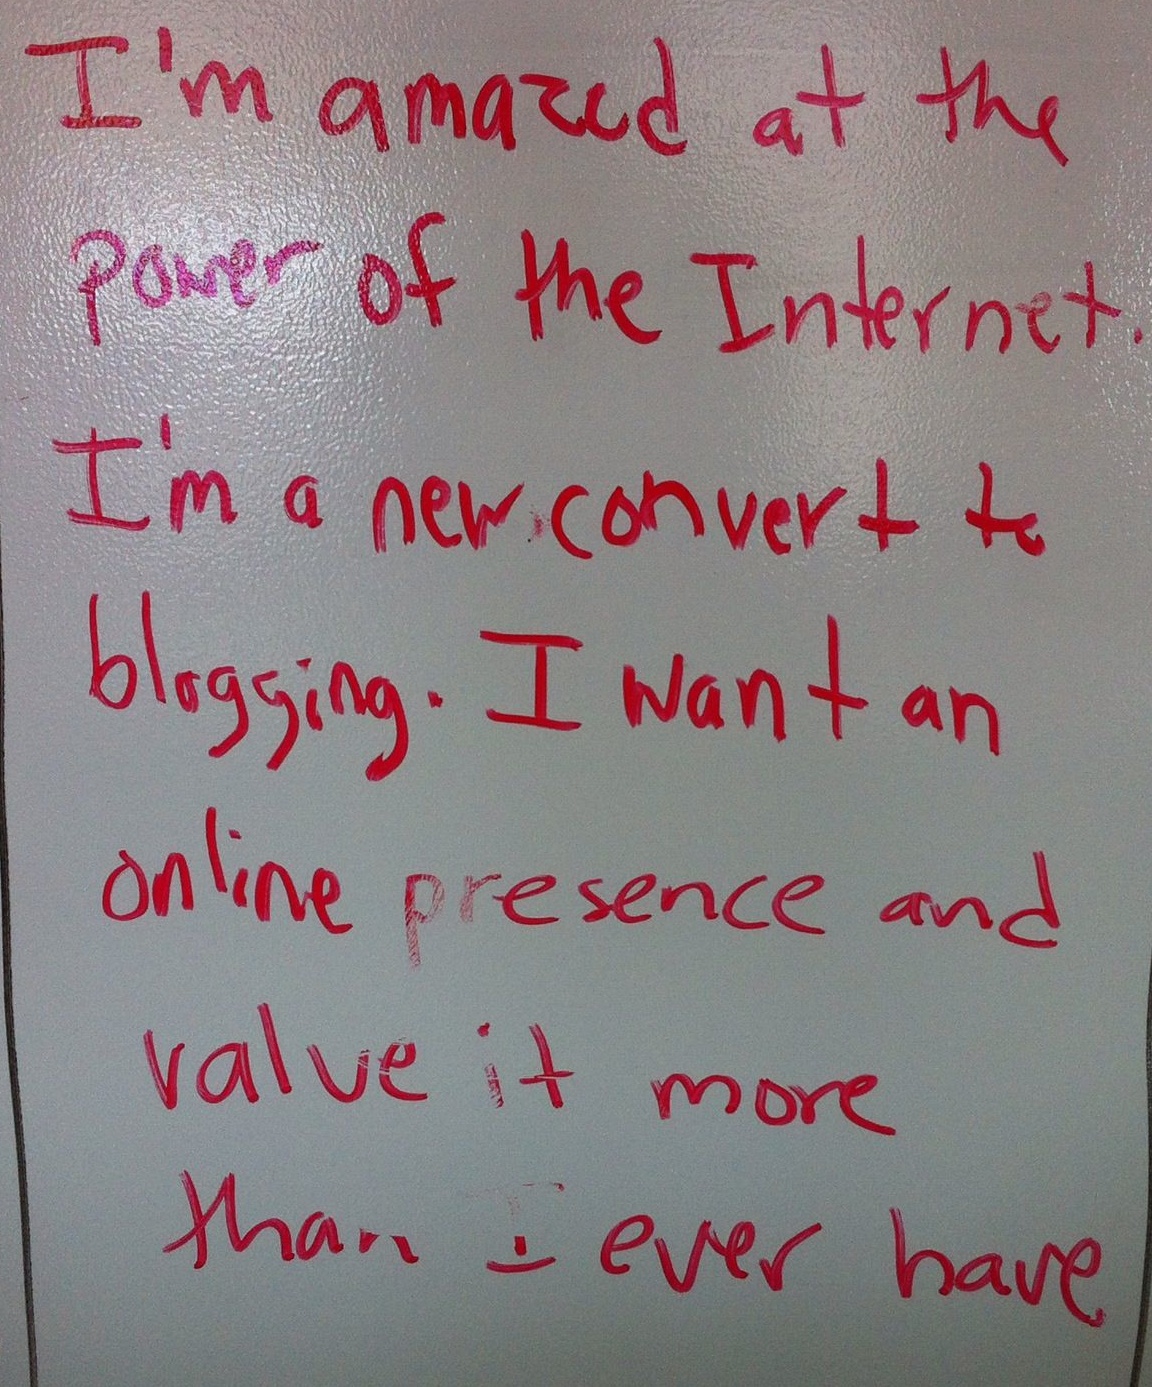 I'm amazed at the
power of the Internet.
I'm a new convert to
blogging. I want an
online presence and
value it more
than I ever have